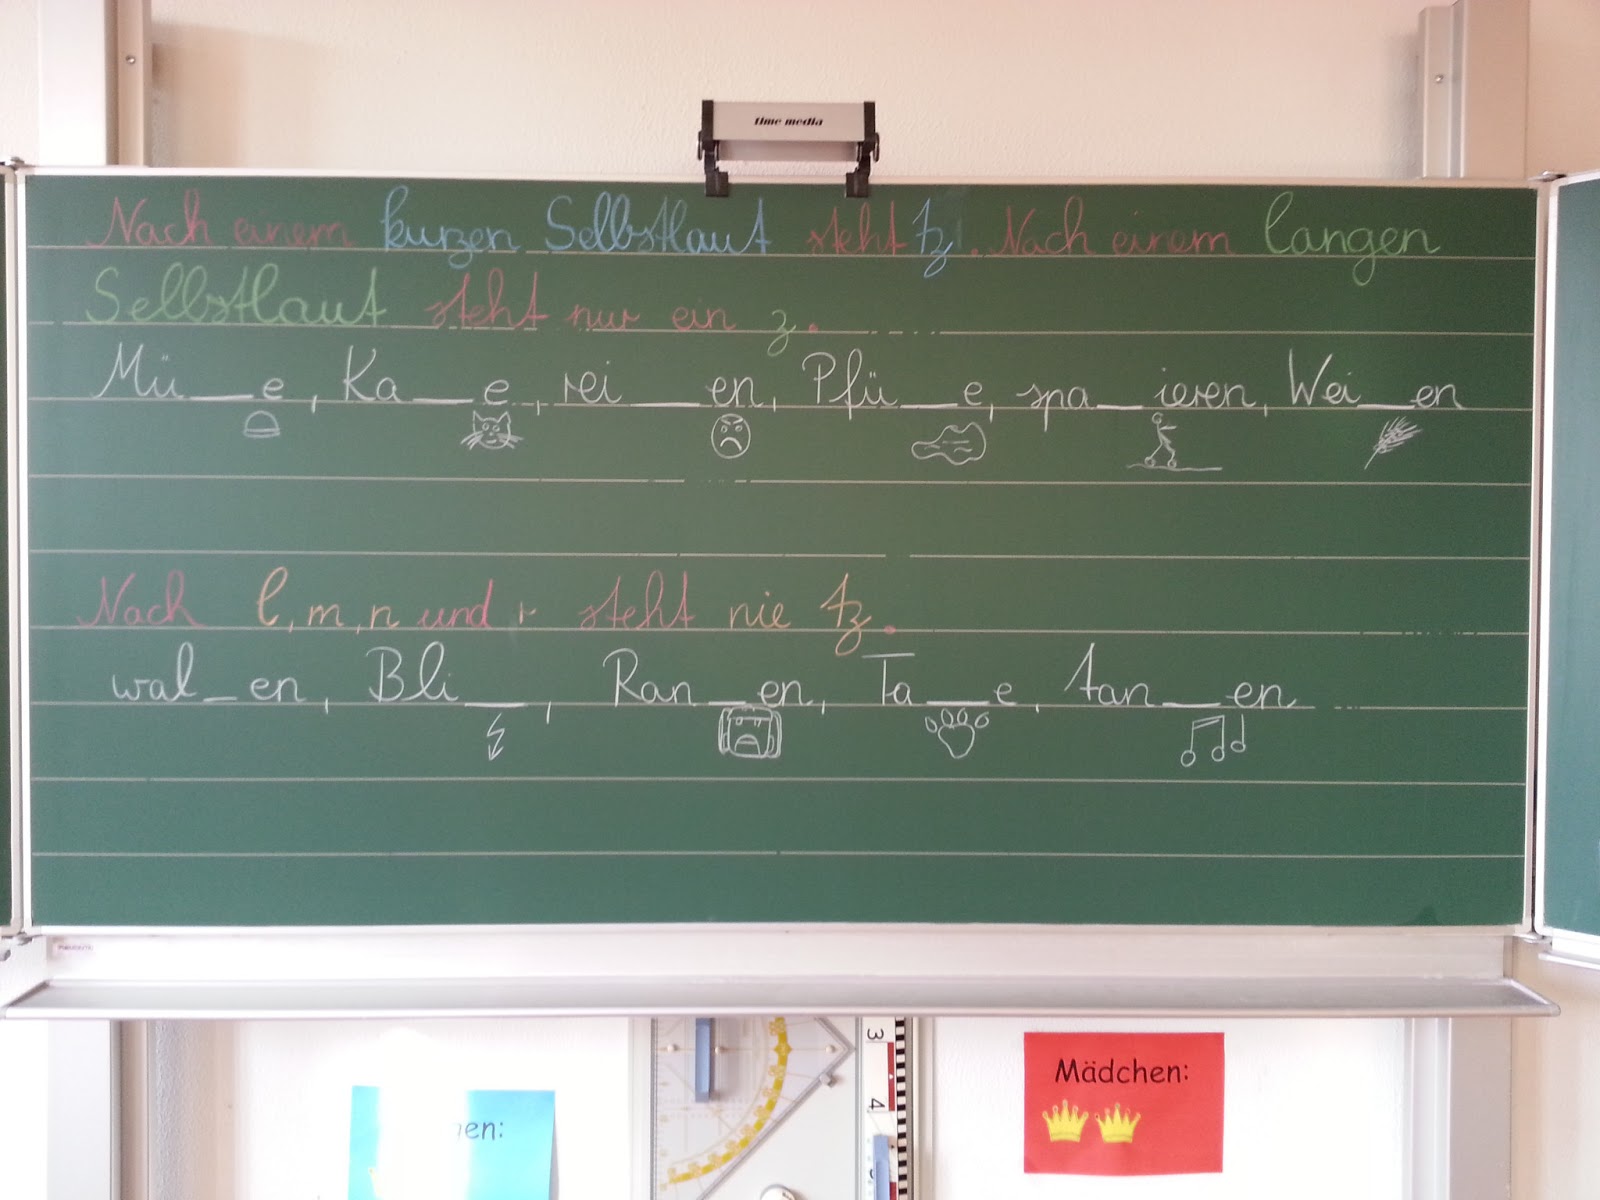 time media
Nach einem kurzen Selbstlaut steht tz. Nach einem langen
Selbstlaut steht nur ein z.
Mü__e, Ka__e, rei__en, Pfü__e, spa__ieren, Wei__en
Nach l, m, n und r steht nie tz.
wal_en, Bli__, Ran__en, Ta__e, tan__en
3
4
Mädchen:
en: